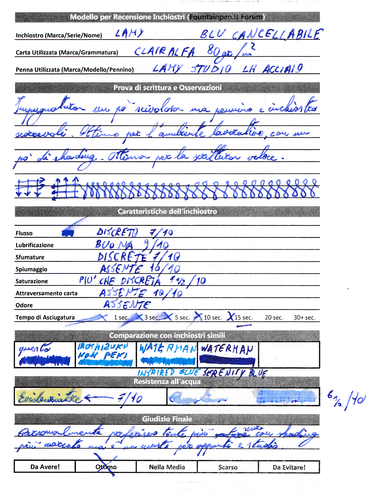 Modello per Recensione Inchiostri (Fountainpen.it Forum)
Inchiostro (Marca/Serie/Nome) LAMY BLU CANCELLABILE
Carta Utilizzata (Marca/Grammatura) CLAIRALFA 80 gr/m²
Penna Utilizzata (Marca/Modello/Pennino) LAMY STUDIO LH ACCIAIO
Prova di scrittura e Osservazioni
Impugnatura un po' scivolosa ma pennino e inchiostro
notevoli. Ottimo per l'ambiente lavorativo, con un
po' di shading. Ottimo per la scrittura veloce.
Caratteristiche dell'inchiostro
Flusso DISCRETO 7/10
Lubrificazione BUONA 9/10
Sfumature DISCRETE 7/10
Spiumaggio ASSENTE 10/10
Saturazione PIU' CHE DISCRETA 7 1/2 /10
Attraversamento carta ASSENTE 10/10
Odore ASSENTE
Tempo di Asciugatura 1 sec. 3 sec. 5 sec. 10 sec. 15 sec. 20 sec. 30+ sec.
Comparazione con inchiostri simili
questo IROSHIZUKU KON PEKI WATERMAN WATERMAN
INSPIRED BLUE SERENITY BLUE
Resistenza all'acqua
Evidenziatore 7/10
6 1/2 /10
Giudizio Finale
Personalmente preferisco tinte più con shading
più marcato ma è un must per appunti e studio.
Da Avere! Ottimo Nella Media Scarso Da Evitare!